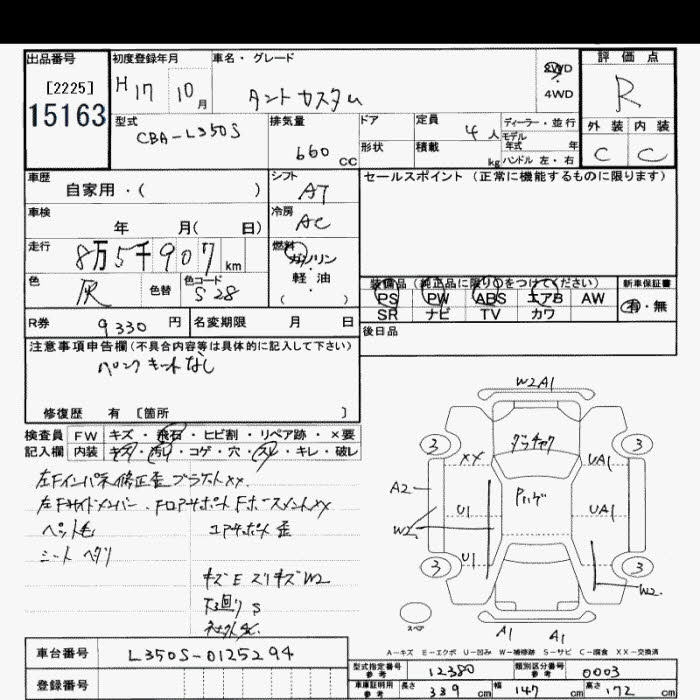 出品番号 初度登録年月 車名・グレード 2WD 4WD 評価点
[2225] H 17 10 月 タントカスタム R
15163 型式 CBA-L350S 排気量 660 CC ドア 定員 4 人 ディーラー・並行 外装 内装
形状 積載 kg モデル年式 年 ハンドル 左・右 C C
車歴 自家用・( ) シフト AT セールスポイント (正常に機能するものに限ります)
車検 年 月( 日) 冷房 AC
走行 8万5千907 km 燃料 ガソリン・軽油 ( )
色 灰 色替 色コード S28 装備品 (純正品に限り○をつけてください) 新車保証書
PS PW ABS エアB AW 有・無
SR ナビ TV カワ
R券 9330 円 名変期限 月 日 後日品
注意事項申告欄 (不具合内容等は具体的に記入して下さい)
パンクキットなし
修復歴 有 [箇所 ]
検査員 FW キズ・飛石・ヒビ割・リペア跡・×要
記入欄 内装 キズ・汚れ・コゲ・穴・スレ・キレ・破レ
左Fインパネ修正歪 ブラケットXX
ペット毛 コアサポート歪
シート ヘタリ
キズ E スリキズ W2
下回り S
W2A1
3 3
XX UA1
A2 U1 UA1
W2 U1
3 3
W2
スペア A1 A1
A-キズ E-エクボ U-凹み W-補修跡 S-サビ C-腐食 XX-交換済
車台番号 L350S-0125294
型式指定番号 参考 12380 類別区分番号 参考 0003
登録番号 車庫証明用 参考 長さ 339 cm 幅 147 cm 高さ 172 cm